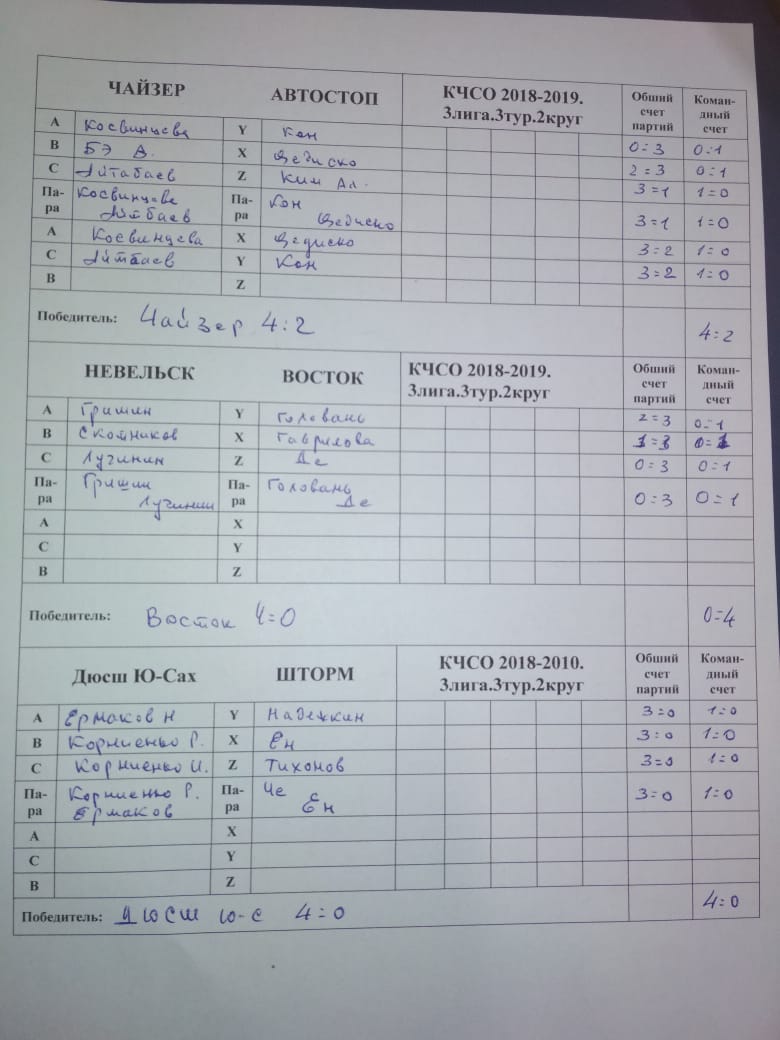 ЧАЙЗЕР АВТОСТОП КЧСО 2018-2019. 3лига.3тур.2круг Общий счет партий Коман-дный счет
A Косвинцева Y Кон 0=3 0=1
B Бэ В. X Ведиско 2=3 0=1
C Айтабаев Z Ким Ал. 3=1 1=0
Па-ра Косвинцева Айтбаев Па-ра Кон Ведиско 3=1 1=0
A Косвинцева X Ведиско 3=2 1=0
C Айтбаев Y Кон 3=2 1=0
B Z
Победитель: Чайзер 4:2 4=2
НЕВЕЛЬСК ВОСТОК КЧСО 2018-2019. 3лига.3тур.2круг Общий счет партий Коман-дный счет
A Гришин Y Головань 2=3 0=1
B Скойников X Гаврилова 1=3 0=1
C Лучинин Z Де 0=3 0=1
Па-ра Гришин Лучинин Па-ра Головань Де 0=3 0=1
A X
C Y
B Z
Победитель: Восток 4=0 0=4
Дюсш Ю-Сах ШТОРМ КЧСО 2018-2010. 3лига.3тур.2круг Общий счет партий Коман-дный счет
A Ермаков Н Y Надежкин 3=0 1=0
B Корниенко Р. X Ен 3=0 1=0
C Корниенко И. Z Тихонов 3=0 1=0
Па-ра Корниенко Р. Ермаков Па-ра Че Ен 3=0 1=0
A X
C Y
B Z
Победитель: Дюсш ю-с 4=0 4=0